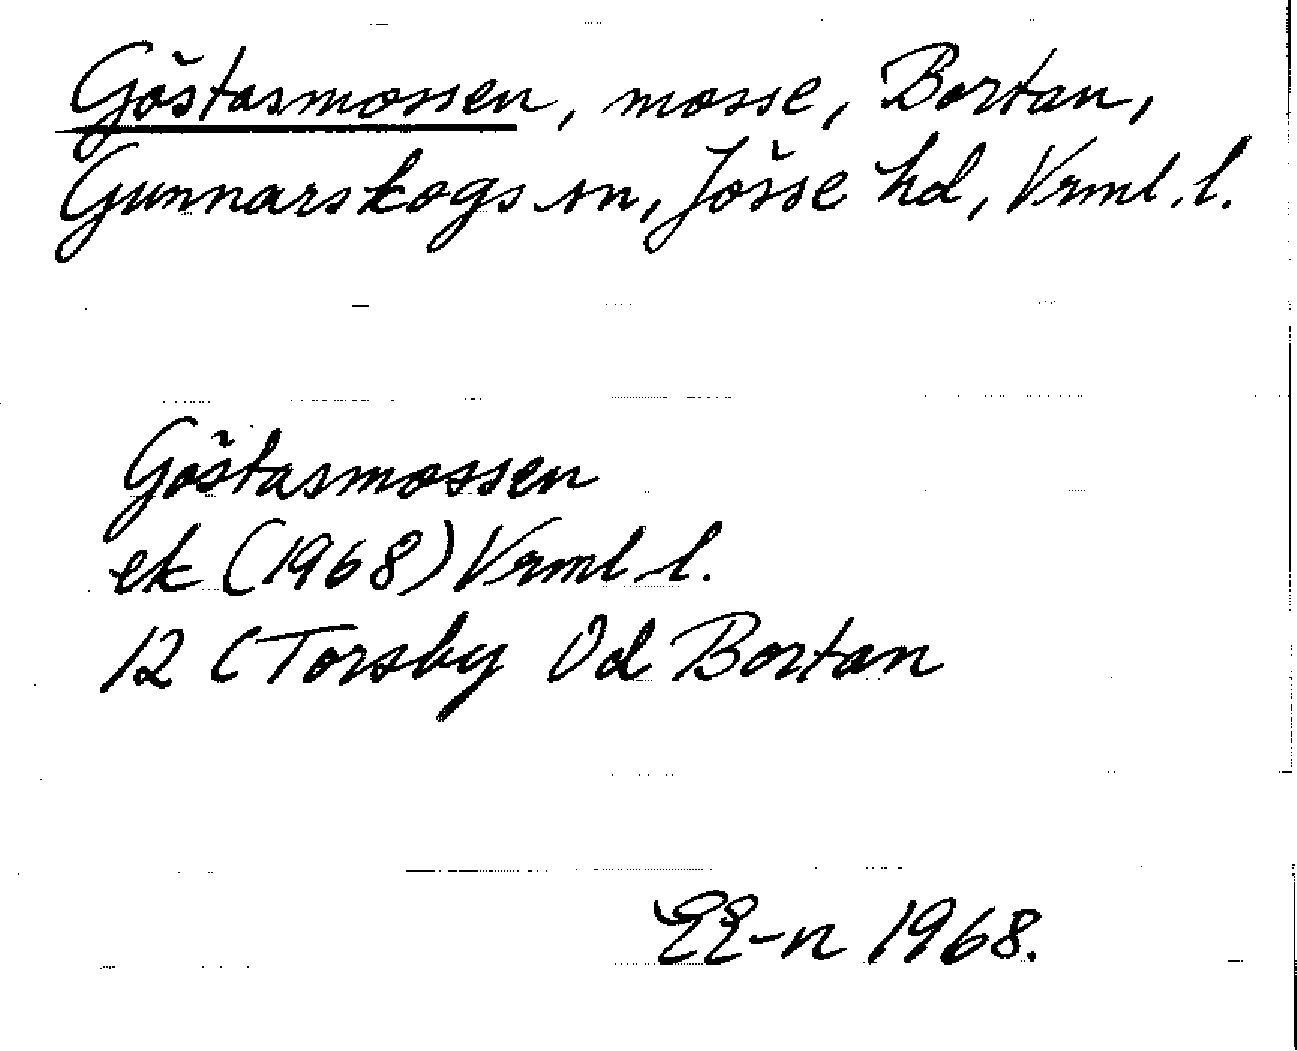 Göstasmossen, mosse, Bortan,
Gunnarskogs sn, Jösse hd, Vrml. l.
Göstasmossen
ek (1968) Vrml. l.
12 C Torsby 0d Bortan
EE-n 1968.